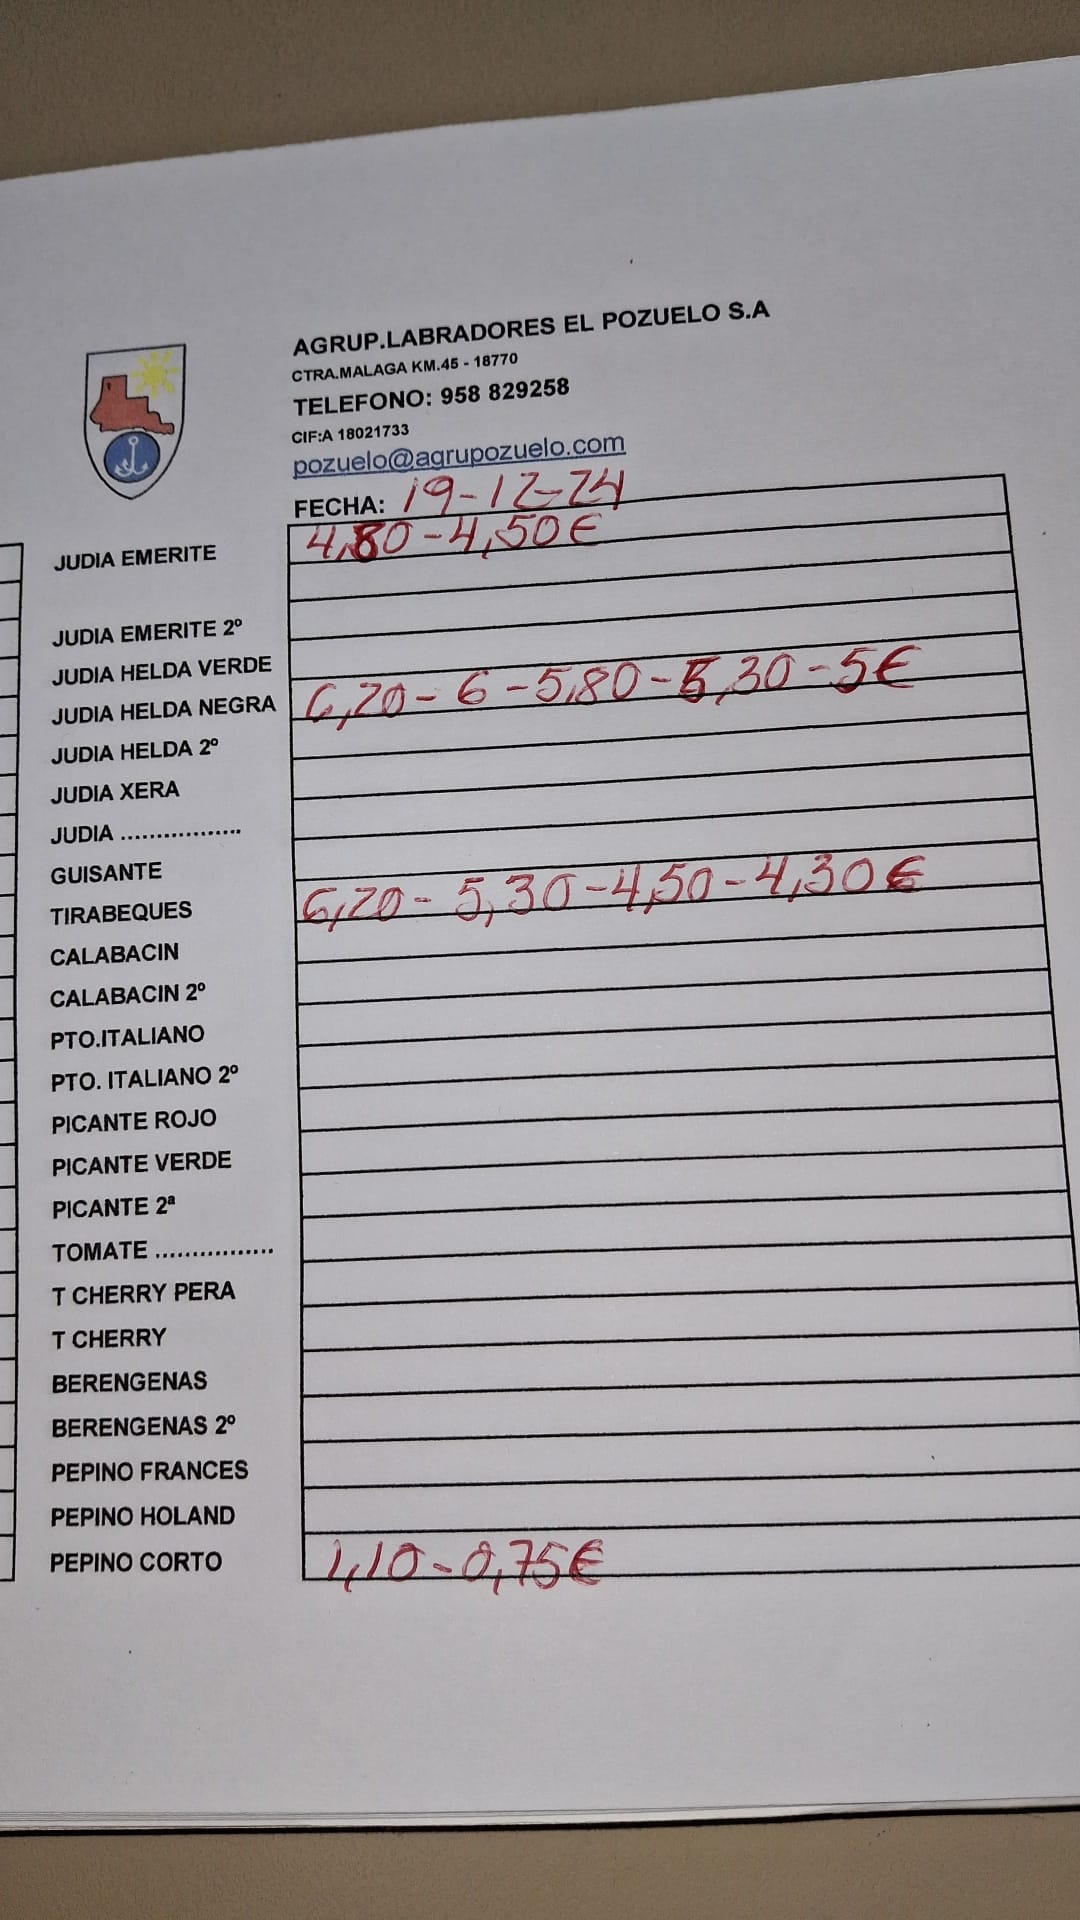 AGRUP.LABRADORES EL POZUELO S.A
CTRA.MALAGA KM.45 - 18770
TELEFONO: 958 829258
CIF:A 18021733
pozuelo@agrupozuelo.com
FECHA: 19-12-24
JUDIA EMERITE 4,80-4,50€
JUDIA EMERITE 2º
JUDIA HELDA VERDE
JUDIA HELDA NEGRA 6,20-6-5,80-5,30-5€
JUDIA HELDA 2º
JUDIA XERA
JUDIA .................
GUISANTE
TIRABEQUES 6,20-5,30-4,50-4,30€
CALABACIN
CALABACIN 2º
PTO.ITALIANO
PTO. ITALIANO 2º
PICANTE ROJO
PICANTE VERDE
PICANTE 2ª
TOMATE ................
T CHERRY PERA
T CHERRY
BERENGENAS
BERENGENAS 2º
PEPINO FRANCES
PEPINO HOLAND
PEPINO CORTO 1,10-0,75€